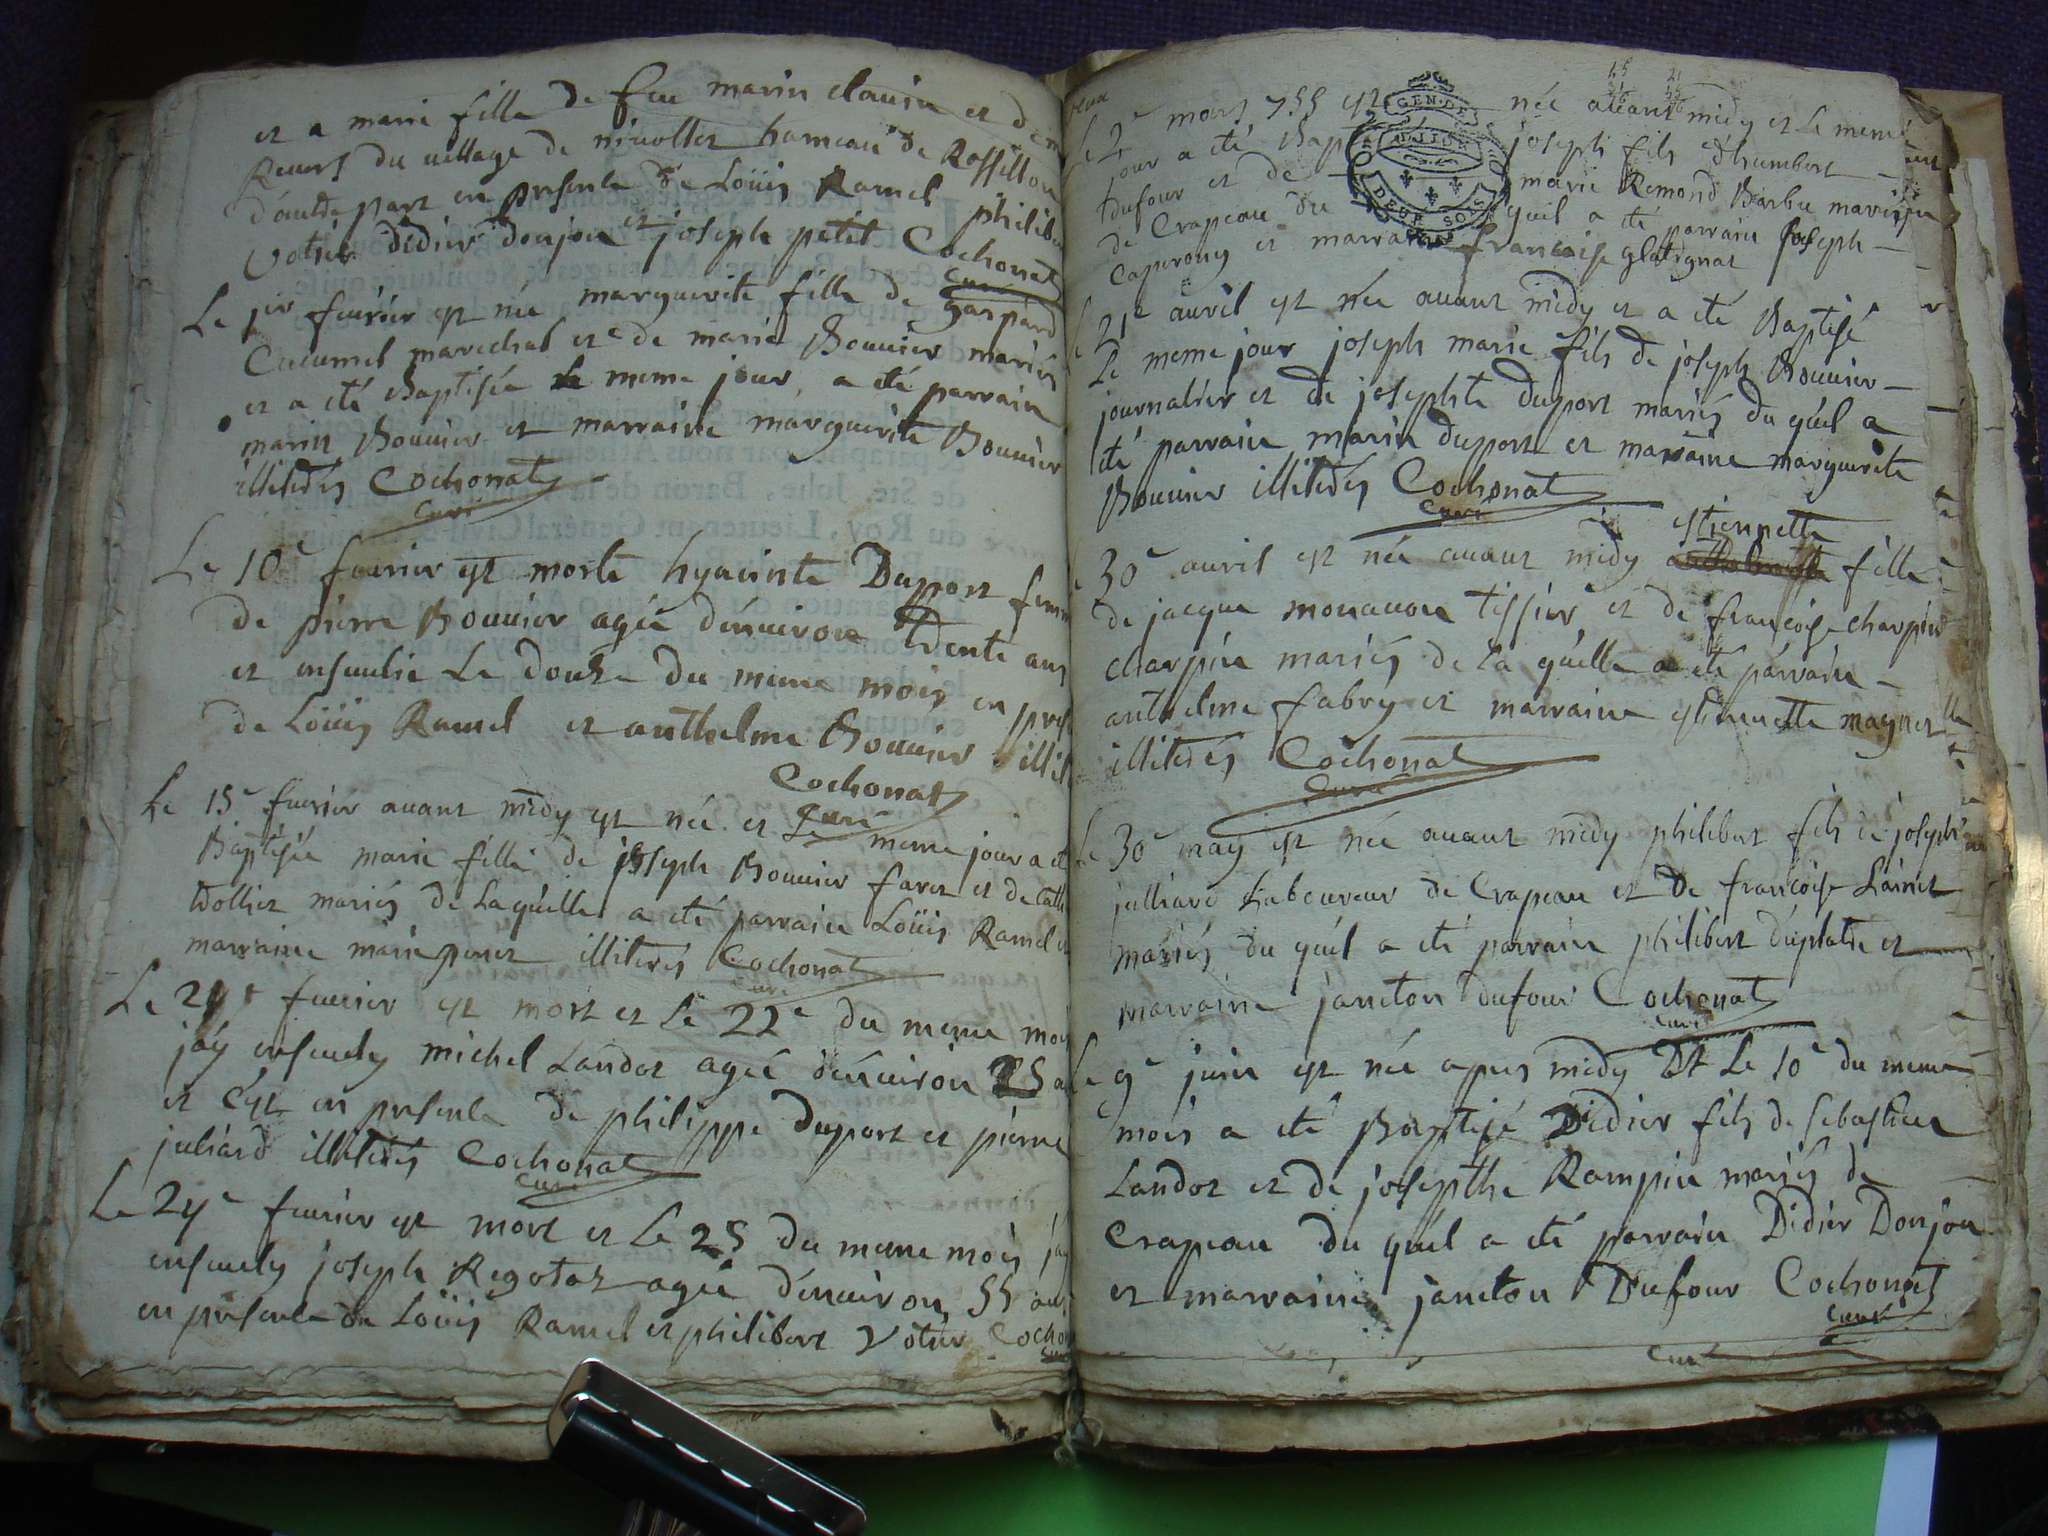 et a marie fille de feu marin clavin et de
Revers du village de nivollet hameau de Rossillon
d'autre part en presence de Loüis Ramel philibert
Votier didier donjon et joseph petit Cochonat
curé
Le 1er fevrier est née marguerite fille de gaspard
Cucumel marechal et de marie Bouvier mariés
et a été Baptisée le meme jour a été parrain
marin Bouvier et marraine marguerite Bouvier
illiterés Cochonat
curé
Le 10e fevrier est morte hyacinte Duport femme
de pierre Bouvier agée d'enuiron trente ans
et ensevelie Le douze du meme mois en
de Loüis Ramel et anthelme Bouvier
Cochonat
curé
Le 15e fevrier avant midy est née et le meme jour a
Baptisée marie fille de joseph Bouvier favet et de
trollier mariés de laquelle a été parrain Loüis Ramel et
marraine marie illiterés Cochonat
curé
Le fevrier est mort et Le 22e du meme mois
j'ay ensevely michel Landoz agé d'enuiron
et c'est en presence de philippe duport et pierre
juliard illiterés Cochonat
curé
Le 24e fevrier est mort et le 25 du meme mois j'ay
ensevely joseph Regotaz agé d'enuiron 55 ans
en presence de Loüis Ramel et philibert Votier
curé
Le 2e mars 755 est née avant midy et le meme
jour a été joseph fils d'humbert
dufour et de marie Remond Barbu mariés
de Crapeau du quil a été parrain joseph
Caperony et marraine francoise glatignat
GEN.DE
DEUX SOLS
21e avril est née avant midy et a été Baptisé
Le meme jour joseph marie fils de joseph Bouvier
journalier et de josephte duport mariés du quel a
été parrain marin duport et marraine marguerite
Bouvier illiterés Cochonat
curé
estiennette
30e avril est née avant midy fille
de jacque monavon tissier et de francoise charpin
charpin mariés de la quelle a été parrain
anthelme fabry et marraine estiennette magnet
illiterés Cochonat
curé
Le 30e may est née avant midy philibert fils de joseph
julliard Laboureur de Crapeau et de francoise
mariés du quel a été parrain philibert duplatre et
marraine jancton dufour Cochonat
curé
Le 9e juin est née apres midy Et Le 10e du meme
mois a été Baptisé Didier fils de sebastien
Landoz et de josepthe Rampin mariés de
Crapeau du quel a été parrain Didier Donjon
et marraine jancton Dufour Cochonat
curé
curé